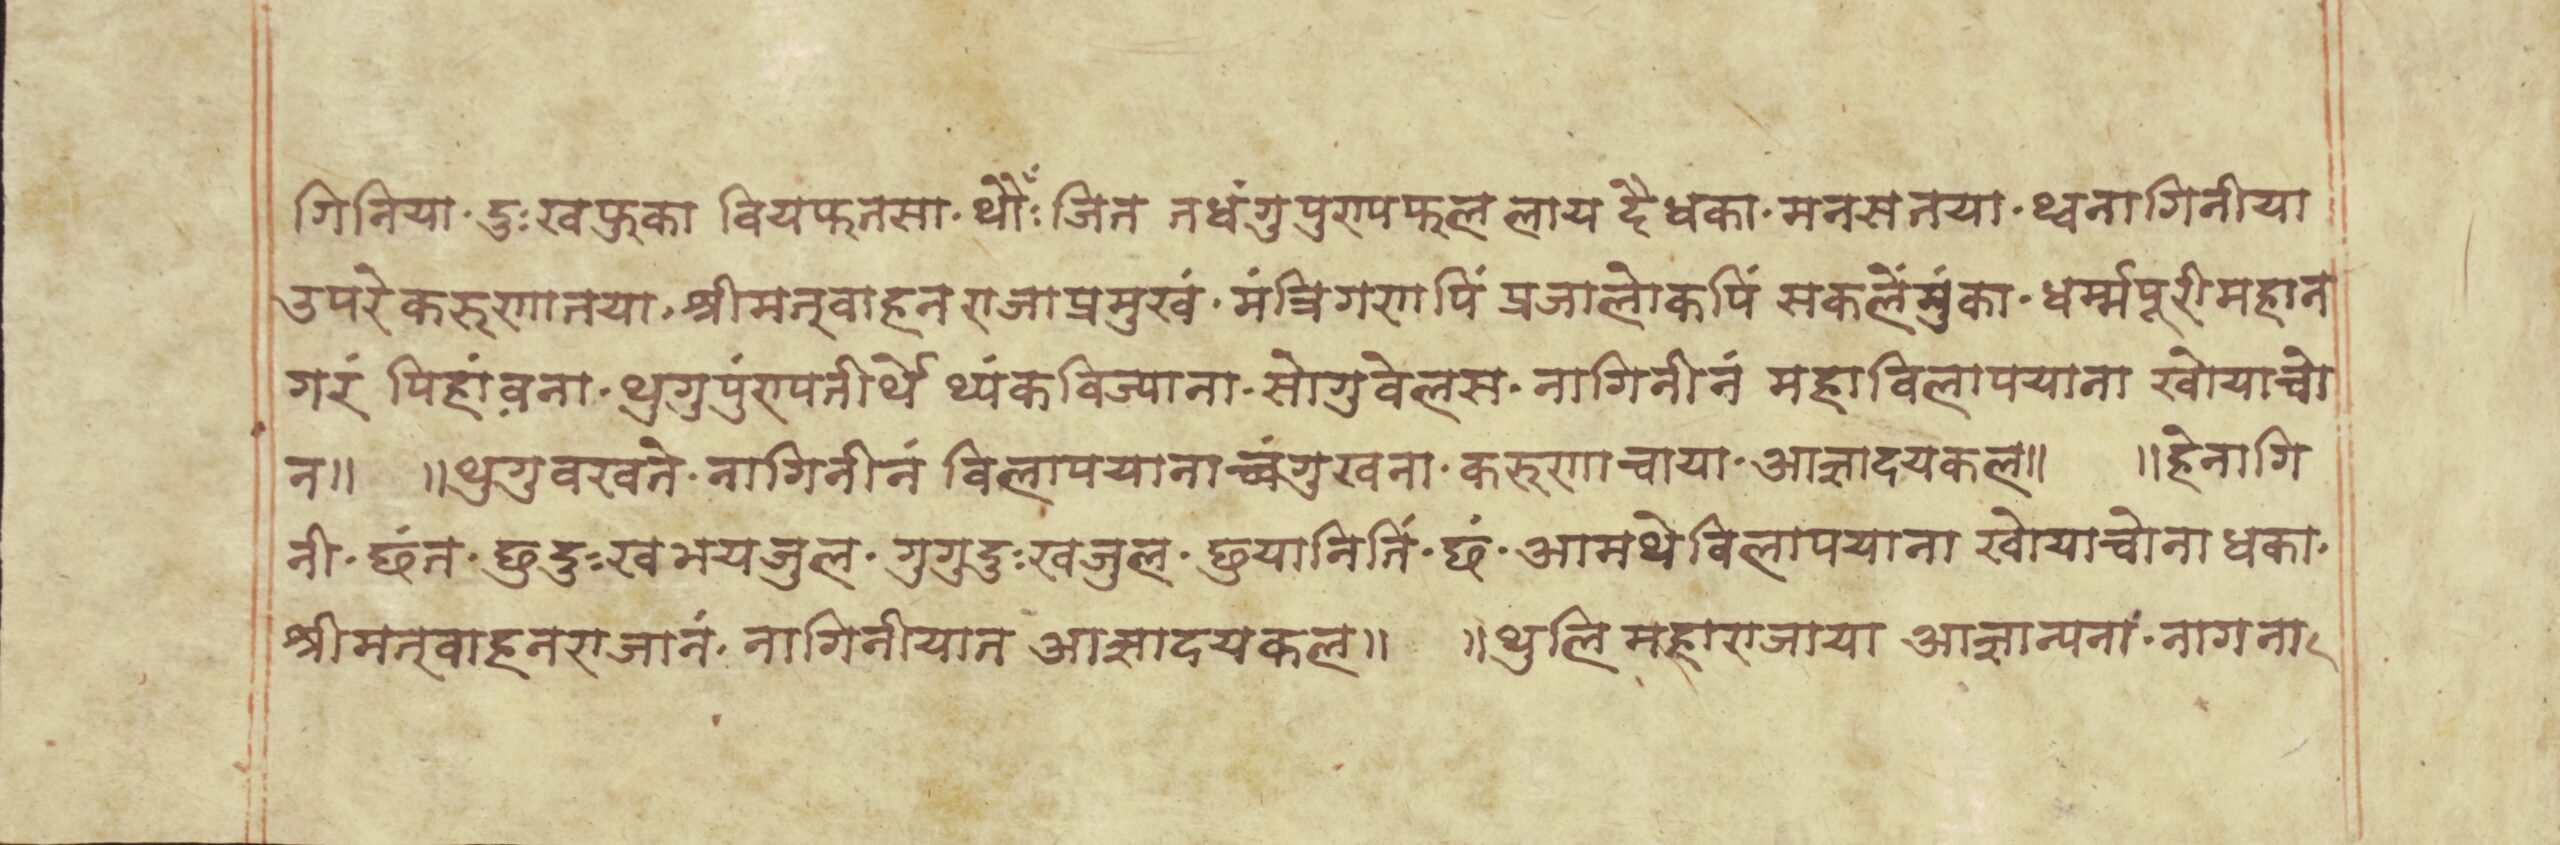 गिनिया· दुःखफुका वियफतसा· थौँः जित तधंगु पुण्यफल लाय दैधका· मनसतया· थ्वनागिनीया
उपरे करुणातया· श्रीमत्वाहन राजाप्रमुखं· मंत्रिगणपिं प्रजालोकपिं सकलेंमुंका· धर्म्मपूरीमहान
गरं पिहांवना· थुगुपुंण्यतीर्थे थ्यंकविज्याना· सोगुवेलस· नागिनीनं महाविलापयाना खोयाचो
न॥ ॥थुगुवखते· नागिनीनं विलापयानाच्वंगुखना· करुणाचाया· आज्ञादयकल॥ ॥हेनागि
नी· छंत· छुदुःखभयजुल· गुगुदुःखजुल· छुयानिर्तिं· छं· आमथेविलापयाना खोयाचोना धका·
श्रीमत्वाहनराजानं· नागिनीयात आज्ञादयकल॥ ॥थुलि महाराजाया आज्ञान्यना· नागना